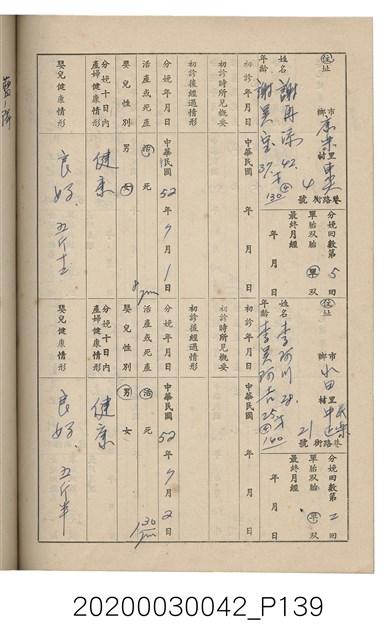 住址
市鄉 里村 東 4 巷路街 號
分娩回數第 5 回
姓名 謝
單胎双胎 單 双
年齡 謝吳宝 37才 130
最終月經 年 月 日
初診年月日 年 月 日
初診時所見概要
初診後經過情形
分娩年月日 中華民國 52 年 7 月 1 日
活產或死產 活 死
嬰兒性別 男 女
分娩十日內產婦健康情形 健康
嬰兒健康情形 良好 五斤
住址
市鄉 水田 里村 21 巷路街 號
分娩回數第 二 回
姓名 李阿川 28
單胎双胎 單 双
年齡 李吳阿 25才 140
最終月經 年 月 日
初診年月日 年 月 日
初診時所見概要
初診後經過情形
分娩年月日 中華民國 52 年 7 月 2 日
活產或死產 活 死
嬰兒性別 男 女
分娩十日內產婦健康情形 健康
嬰兒健康情形 良好 五斤半
20200030042_P139